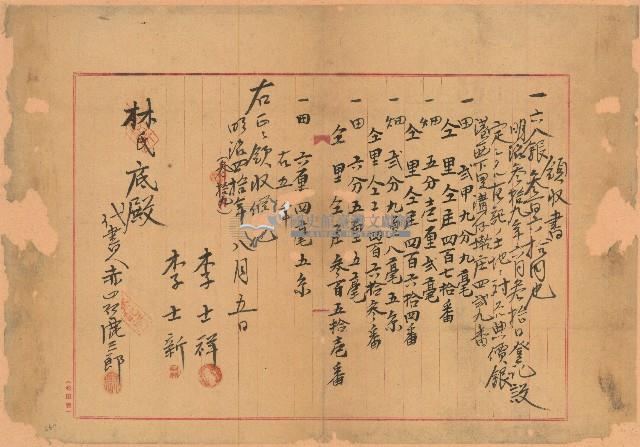 領收書
一六八銀參百六拾円也
明治參拾九年六月參拾日登記設
定シタル左記ノ土地ニ對スル典價銀
溝西下里溝仔墘庄四貳九番
一田 貳甲九分九毫
仝里仝庄四百七拾番
一畑 五分壱厘貳毫
仝里仝庄四百六拾四番
一畑 貳分九厘八毫五糸
仝里仝庄四百六拾參番
一田 六分五厘五毫
仝里仝庄參百五拾壱番
一田 六厘四毫五糸
右五筆
右正ニ領收候也
明治四拾年八月五日
李士祥
李士新
林氏底殿
代書人 赤